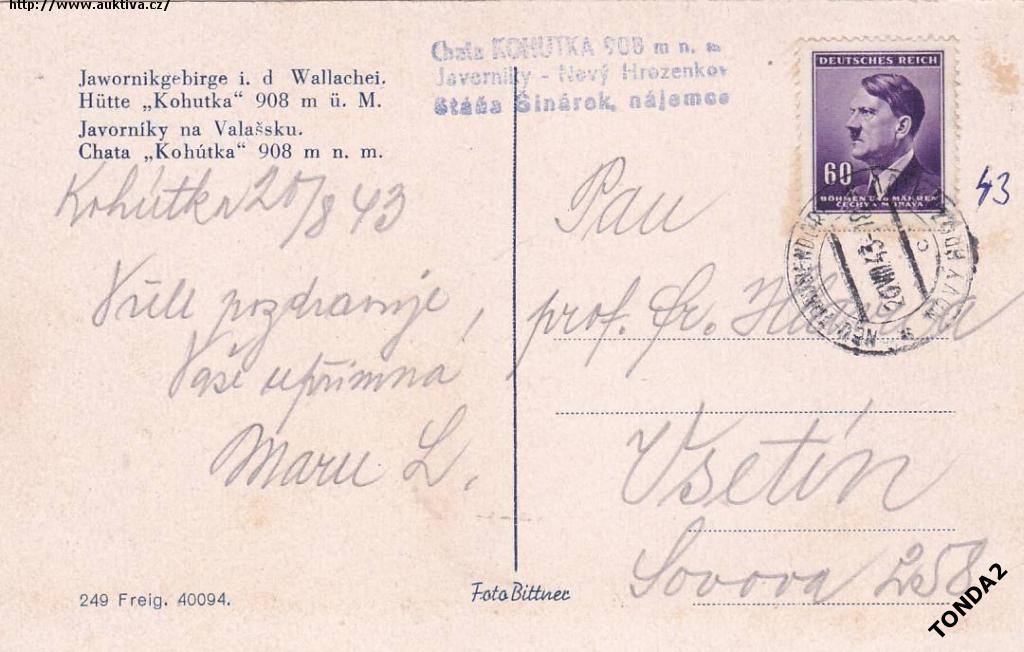 http://www.auktiva.cz/
Jawornikgebirge i. d Wallachei.
Hütte „Kohutka“ 908 m ü. M.
Javorníky na Valašsku.
Chata „Kohútka“ 908 m n. m.
Chata KOHUTKA 908 m n. m
Javorníky - Nový Hrozenkov
Stáňa Šinárek, nájemce
DEUTSCHES REICH
60
BÖHMEN UND MÄHREN
ČECHY A MORAVA
43
20.VIII.43
Kohútka 20/8 43
Vřele pozdravuje,
Vaše upřímná
L.
Pan
prof. Fr.
Vsetín
Sovova 258
249 Freig. 40094.
Foto Bittner
TONDA2